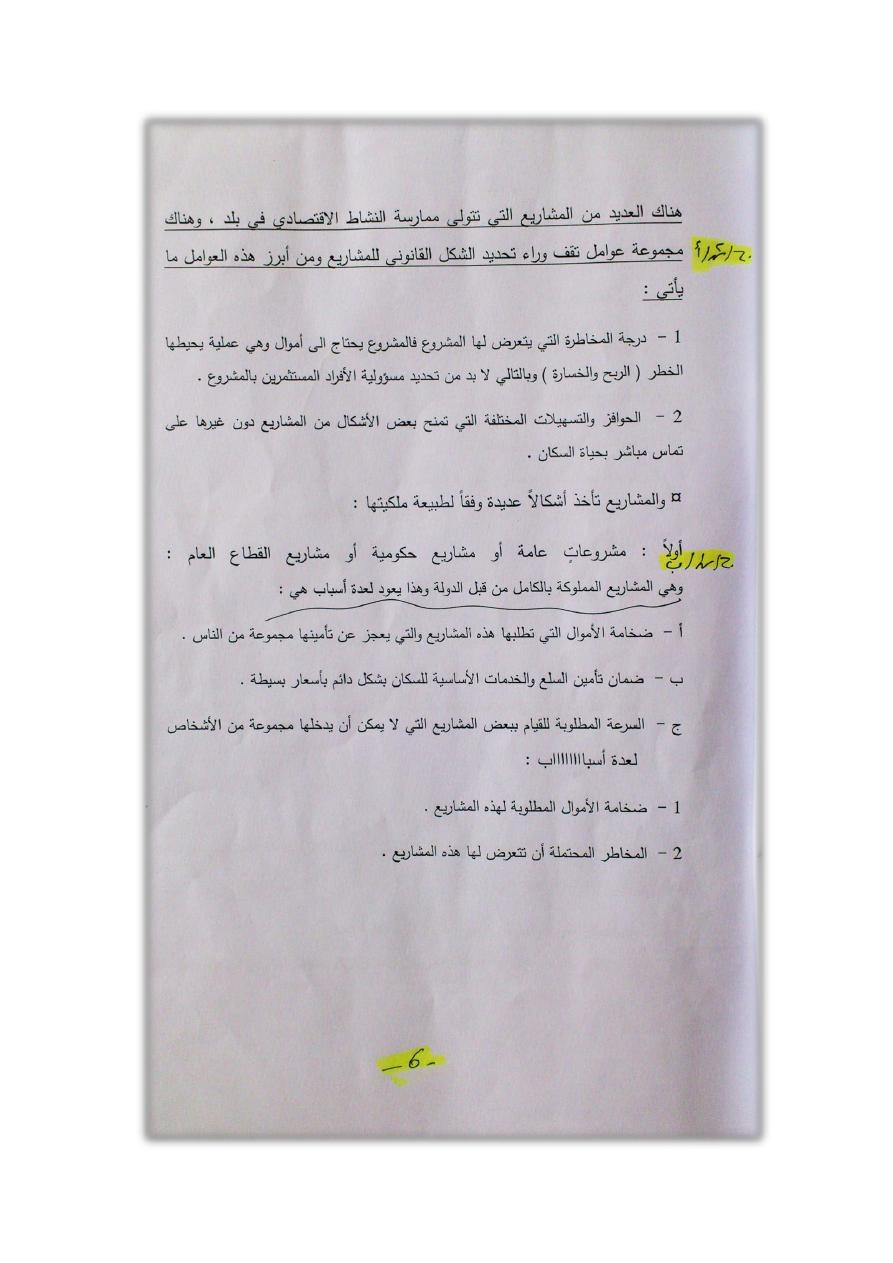 هناك العديد من المشاريع التي تتولى ممارسة النشاط الاقتصادي في بلد ، وهناك
مجموعة عوامل تقف وراء تحديد الشكل القانوني للمشاريع ومن أبرز هذه العوامل ما
يأتي :
1 - درجة المخاطرة التي يتعرض لها المشروع فالمشروع يحتاج الى أموال وهي عملية يحيطها
الخطر ( الربح والخسارة ) وبالتالي لا بد من تحديد مسؤولية الأفراد المستثمرين بالمشروع .
2 - الحوافز والتسهيلات المختلفة التي تمنح بعض الأشكال من المشاريع دون غيرها على
تماس مباشر بحياة السكان .
¤ والمشاريع تأخذ أشكالاً عديدة وفقاً لطبيعة ملكيتها :
أولاً : مشروعاتٍ عامة أو مشاريع حكومية أو مشاريع القطاع العام :
وهي المشاريع المملوكة بالكامل من قبل الدولة وهذا يعود لعدة أسباب هي :
أ - ضخامة الأموال التي تطلبها هذه المشاريع والتي يعجز عن تأمينها مجموعة من الناس .
ب - ضمان تأمين السلع والخدمات الأساسية للسكان بشكل دائم بأسعار بسيطة .
ج - السرعة المطلوبة للقيام ببعض المشاريع التي لا يمكن أن يدخلها مجموعة من الأشخاص
لعدة أسباااااااب :
1 - ضخامة الأموال المطلوبة لهذه المشاريع .
2 - المخاطر المحتملة أن تتعرض لها هذه المشاريع .
- 6 -